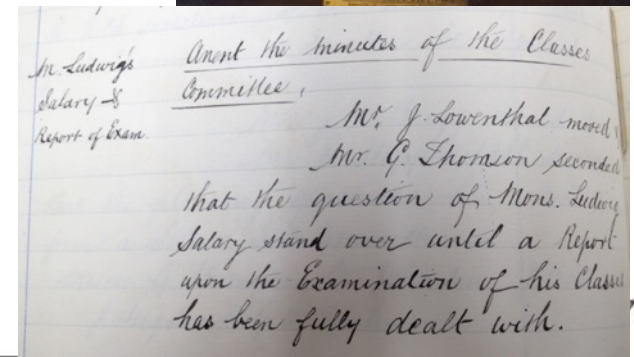 M. Ludwig's
Salary &
Report of Exam.
Anent the minutes of the Classes
Committee,
Mr. J. Lowenthal moved
Mr. G. Thomson seconded
that the question of Mons. Ludwig
Salary stand over until a Report
upon the Examination of his Classes
has been fully dealt with.